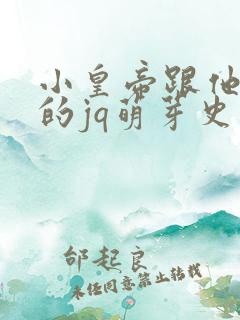 小皇帝跟他
的jq萌芽史
邰起良
未经同意禁止转载